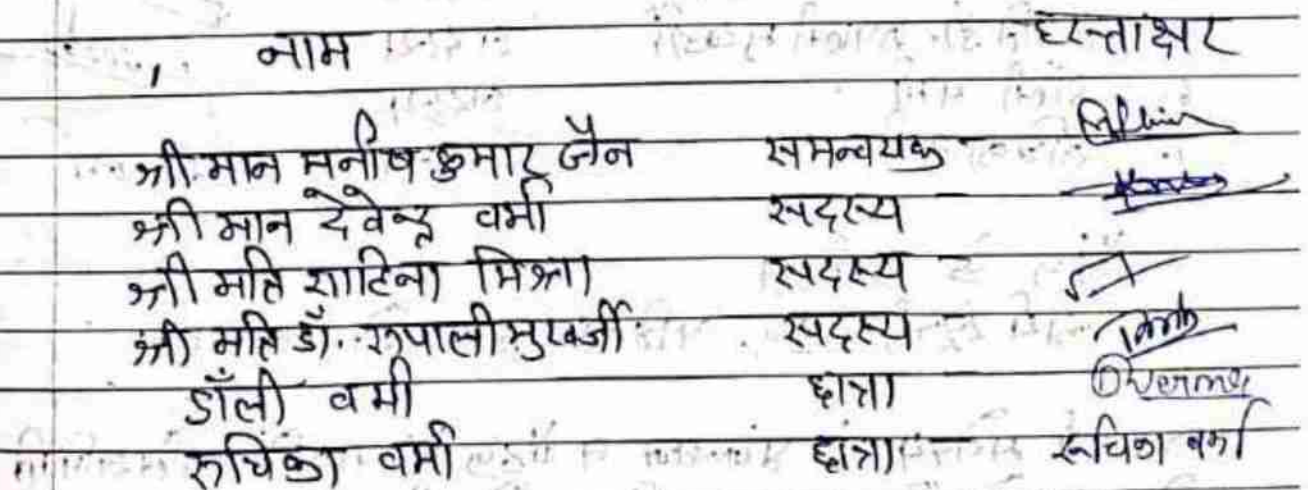 नाम हस्ताक्षर
श्री मान मनीष कुमार जैन समन्वयक -
श्री मान देवेन्द्र वर्मा सदस्य -
श्री मति मिश्रा सदस्य -
श्री मति डॉ. रूपाली मुखर्जी सदस्य -
डॉली वर्मा छात्रा - DVerma
रुचिका वर्मा छात्रा - रूचिका वर्मा